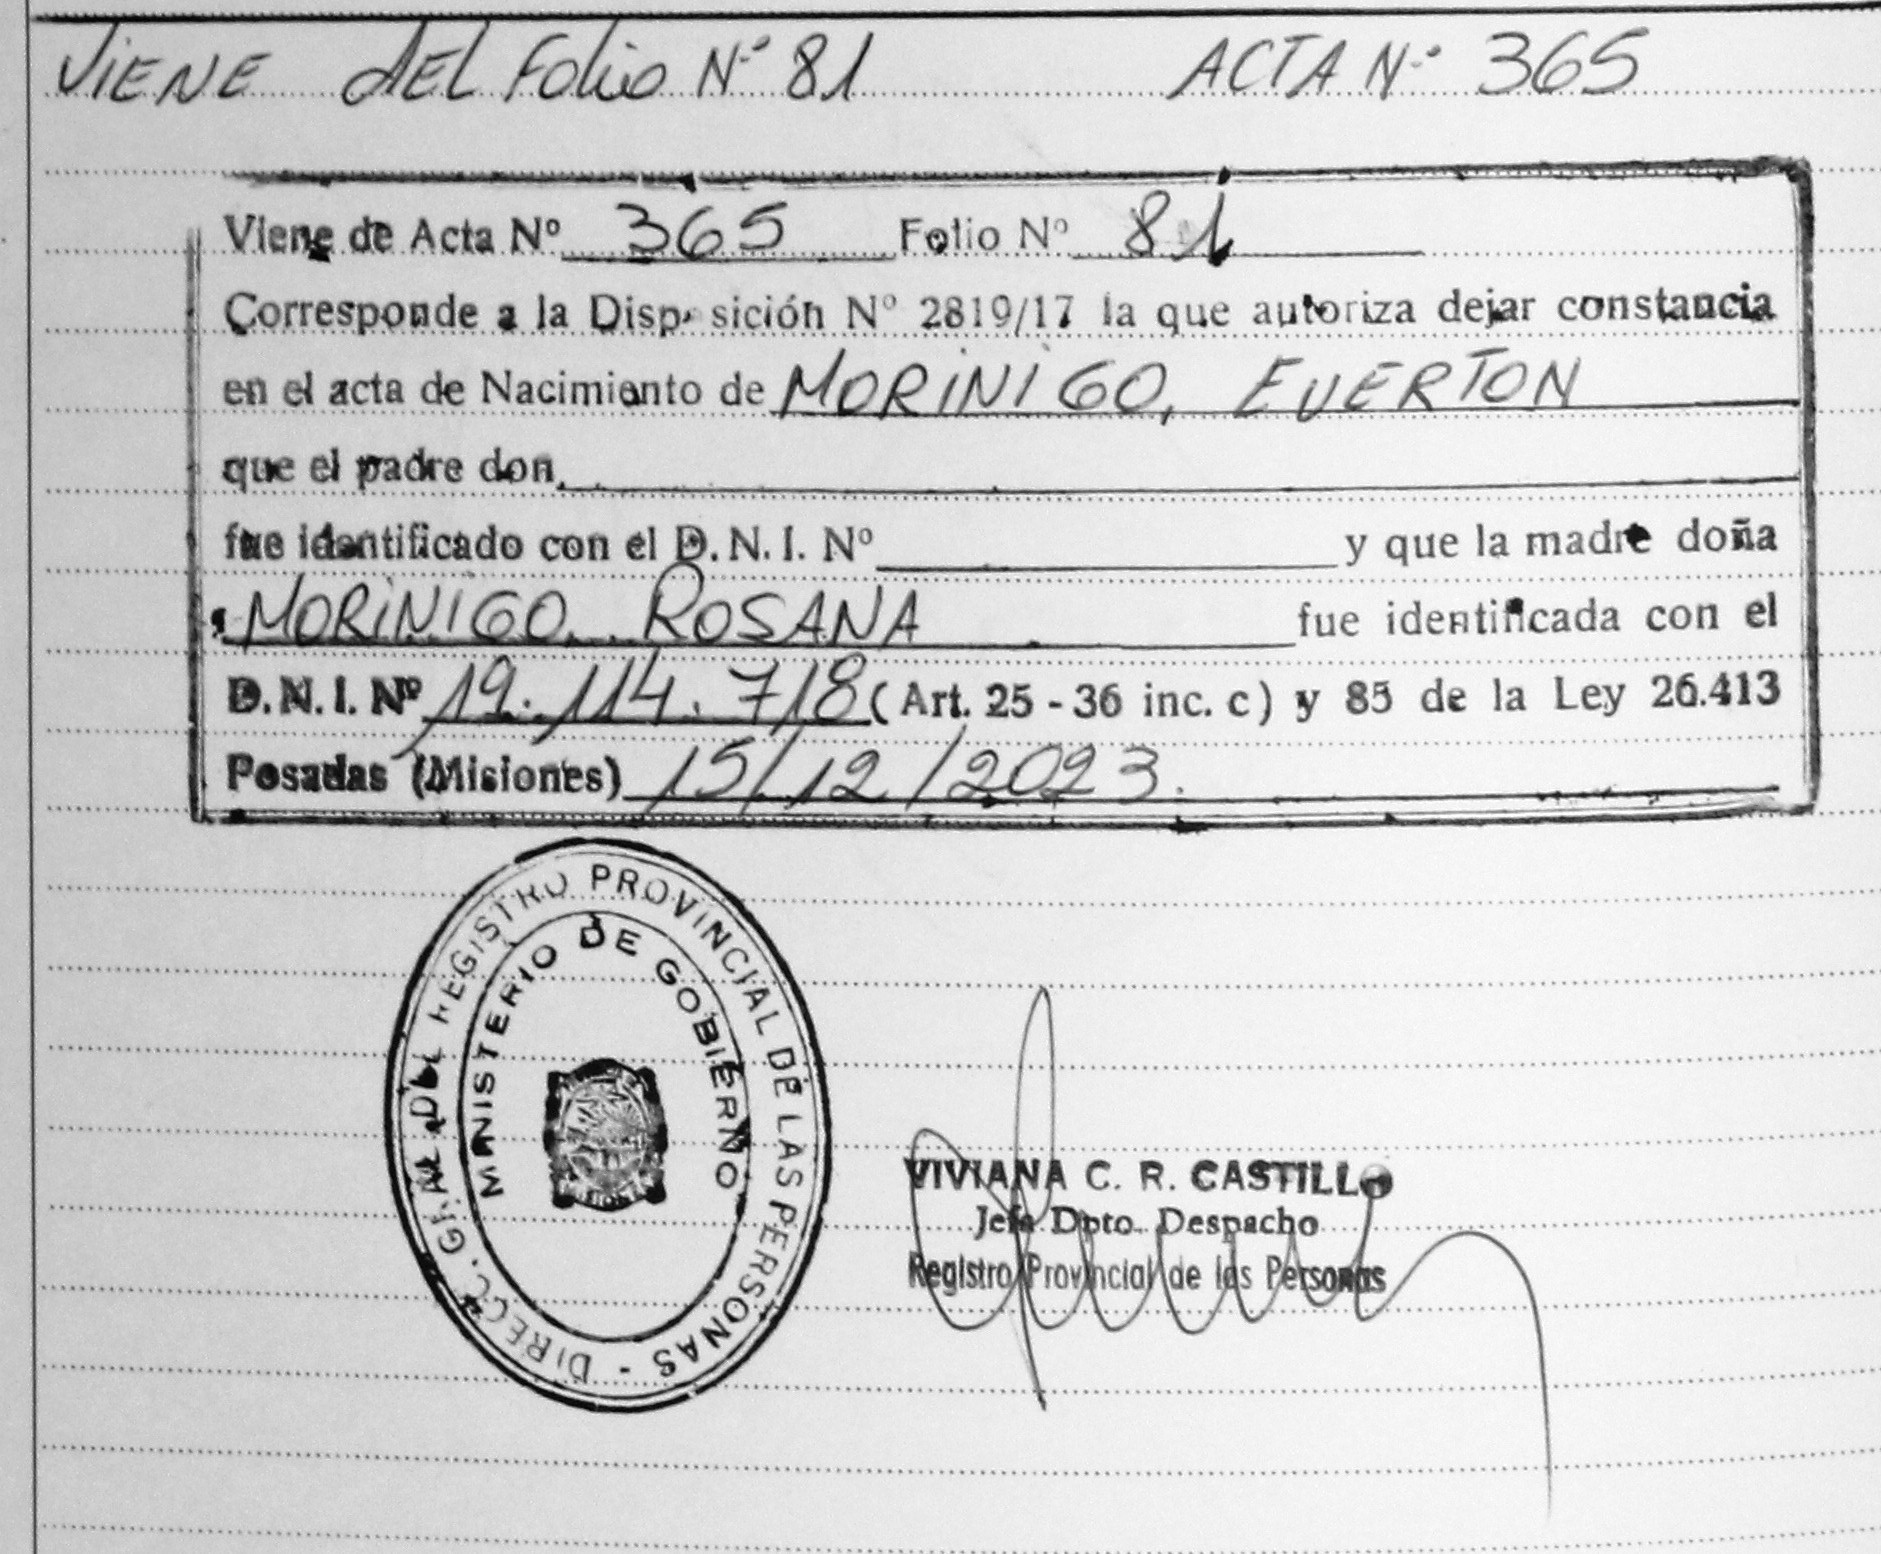 VIENE DEL FOLIO Nº 81 ACTA Nº 365
Viene de Acta Nº 365 Folio Nº 81
Corresponde a la Disposición Nº 2819/17 la que autoriza dejar constancia
en el acta de Nacimiento de MORINIGO, EVERTON
que el padre don
fue identificado con el D.N.I. Nº y que la madre doña
MORINIGO ROSANA fue identificada con el
D.N.I. Nº 19.114.718 (Art. 25 - 36 inc. c) y 85 de la Ley 26.413
Posadas (Misiones) 15/12/2023.
DIRECC. GRAL DEL REGISTRO PROVINCIAL DE LAS PERSONAS -
MINISTERIO DE GOBIERNO
VIVIANA C. R. CASTILLO
Jefa Dpto. Despacho
Registro Provincial de las Personas